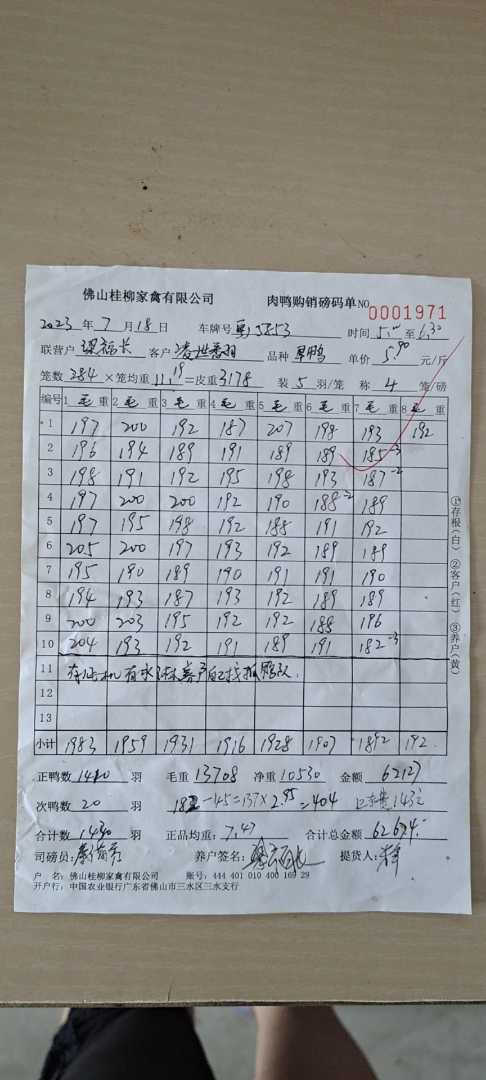 佛山桂柳家禽有限公司 肉鸭购销磅码单 NO 0001971
2023 年 7 月 18 日 车牌号 粤J5853 时间 5:00 至 6:30
联营户 梁福长 客户 品种 旱鸭 单价 5.90 元/斤
笼数 284 ×笼均重 11.19 =皮重 3178 装 5 羽/笼 称 4 笼/磅
编号 1 毛 重 2 毛 重 3 毛 重 4 毛 重 5 毛 重 6 毛 重 7 毛 重 8 毛 重
1 197 200 192 187 207 198 193 192
2 196 194 189 191 189 189 185-3
3 198 191 192 195 198 193 187-2
4 197 200 200 192 190 188-2 189
5 197 195 198 192 188 191 192
6 205 200 197 193 192 189 189
7 195 190 189 190 191 191 190
8 194 193 187 193 192 189 189
9 200 203 195 192 192 188 196
10 204 193 192 191 189 191 182-3
11
12
13
小计 1983 1959 1931 1916 1928 1907 1892 192
正鸭数 1410 羽 毛重 13708 净重 10530 金额 62127
次鸭数 20 羽 182-45=137×2.95=404
合计数 1430 羽 正品均重: 7.47 合计总金额 62674
司磅员: 养户签名: 提货人:
户 名: 佛山桂柳家禽有限公司 账号: 444 401 010 400 169 29
开户行: 中国农业银行广东省佛山市三水区三水支行
①存根(白) ②客户(红) ③养户(黄)